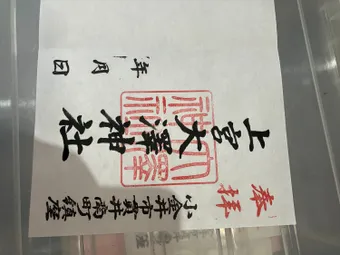 奉拝
小金井市貫井南町鎮座
上宮大澤神社
年月日